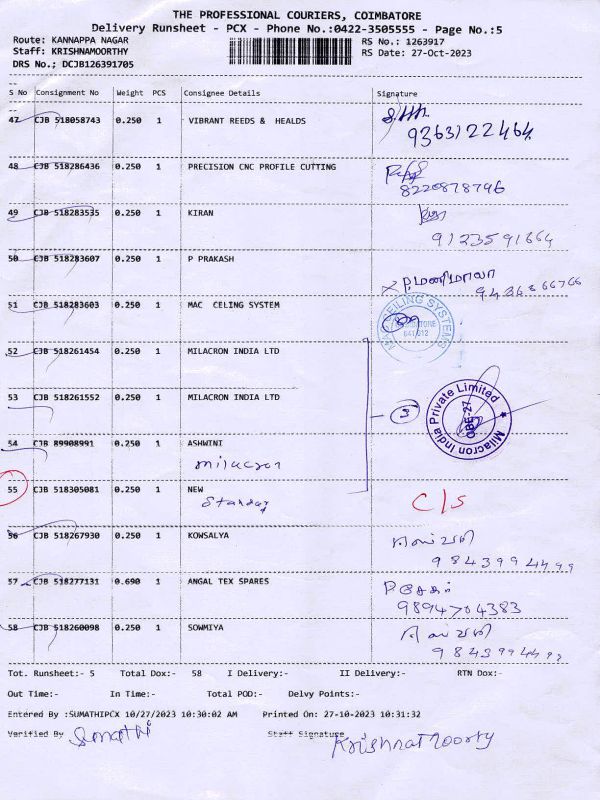 THE PROFESSIONAL COURIERS, COIMBATORE
Delivery Runsheet - PCX - Phone No.:0422-3505555 - Page No.:5
Route: KANNAPPA NAGAR
RS No.: 1263917
Staff: KRISHNAMOORTHY
RS Date: 27-Oct-2023
DRS No.; DCJB126391705
S No Consignment No Weight PCS Consignee Details Signature
47 CJB 518058743 0.250 1 VIBRANT REEDS & HEALDS
9363122464
48 CJB 518286436 0.250 1 PRECISION CNC PROFILE CUTTING
8220878796
49 CJB 518283535 0.250 1 KIRAN
9123591664
50 CJB 518283607 0.250 1 P PRAKASH
P.மணிமாலா
51 CJB 518283603 0.250 1 MAC CELING SYSTEM
MAC CEILING SYSTEMS
COIMBATORE
641 012
52 CJB 518261454 0.250 1 MILACRON INDIA LTD
53 CJB 518261552 0.250 1 MILACRON INDIA LTD
Milacron India Private Limited
CBE-27
54 CJB 89908991 0.250 1 ASHWINI
milacron
55 CJB 518305081 0.250 1 NEW
C/S
56 CJB 518267930 0.250 1 KOWSALYA
9843994499
57 CJB 518277131 0.690 1 ANGAL TEX SPARES
9894704383
58 CJB 518260098 0.250 1 SOWMIYA
9843994499
Tot. Runsheet:- 5 Total Dox:- 58 I Delivery:- II Delivery:- RTN Dox:-
Out Time:- In Time:- Total POD:- Delvy Points:-
Entered By :SUMATHIPCX 10/27/2023 10:30:02 AM Printed On: 27-10-2023 10:31:32
Verified By Sumathi Staff Signature KrishnaMoorty